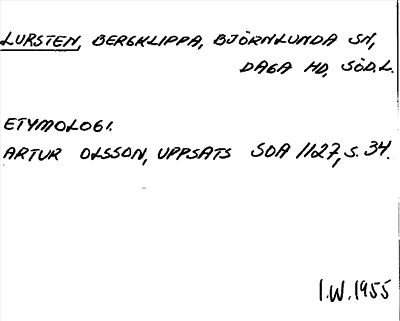 LURSTEN, BERGKLIPPA, BJÖRNLUNDA SN,
DAGA HD, SÖD.L.
ETYMOLOGI.
ARTUR OLSSON, UPPSATS SOA 1127, S. 34.
I.W. 1955